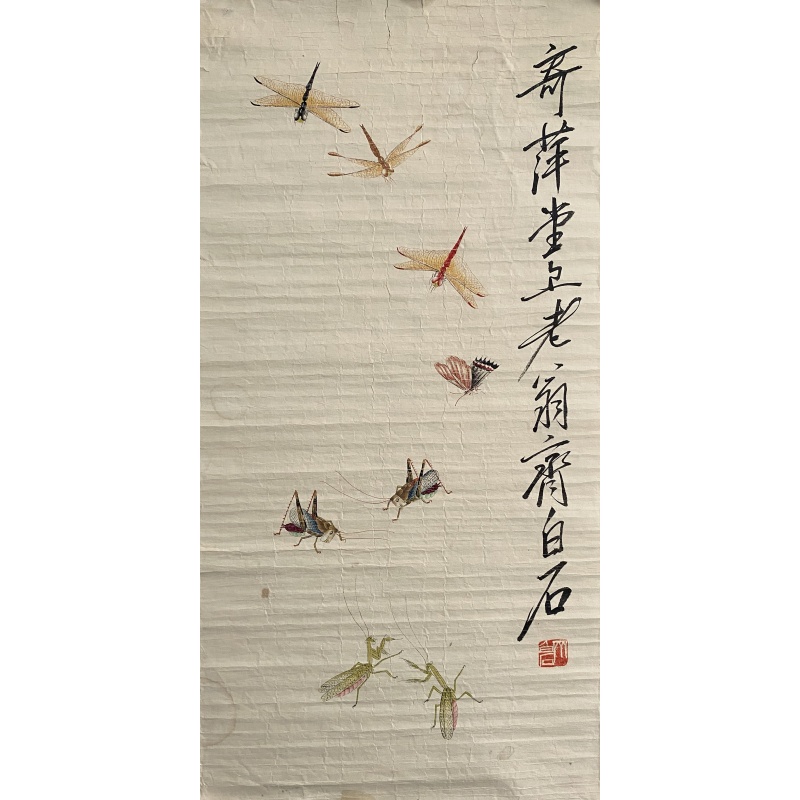 寄萍堂上老翁齊白石